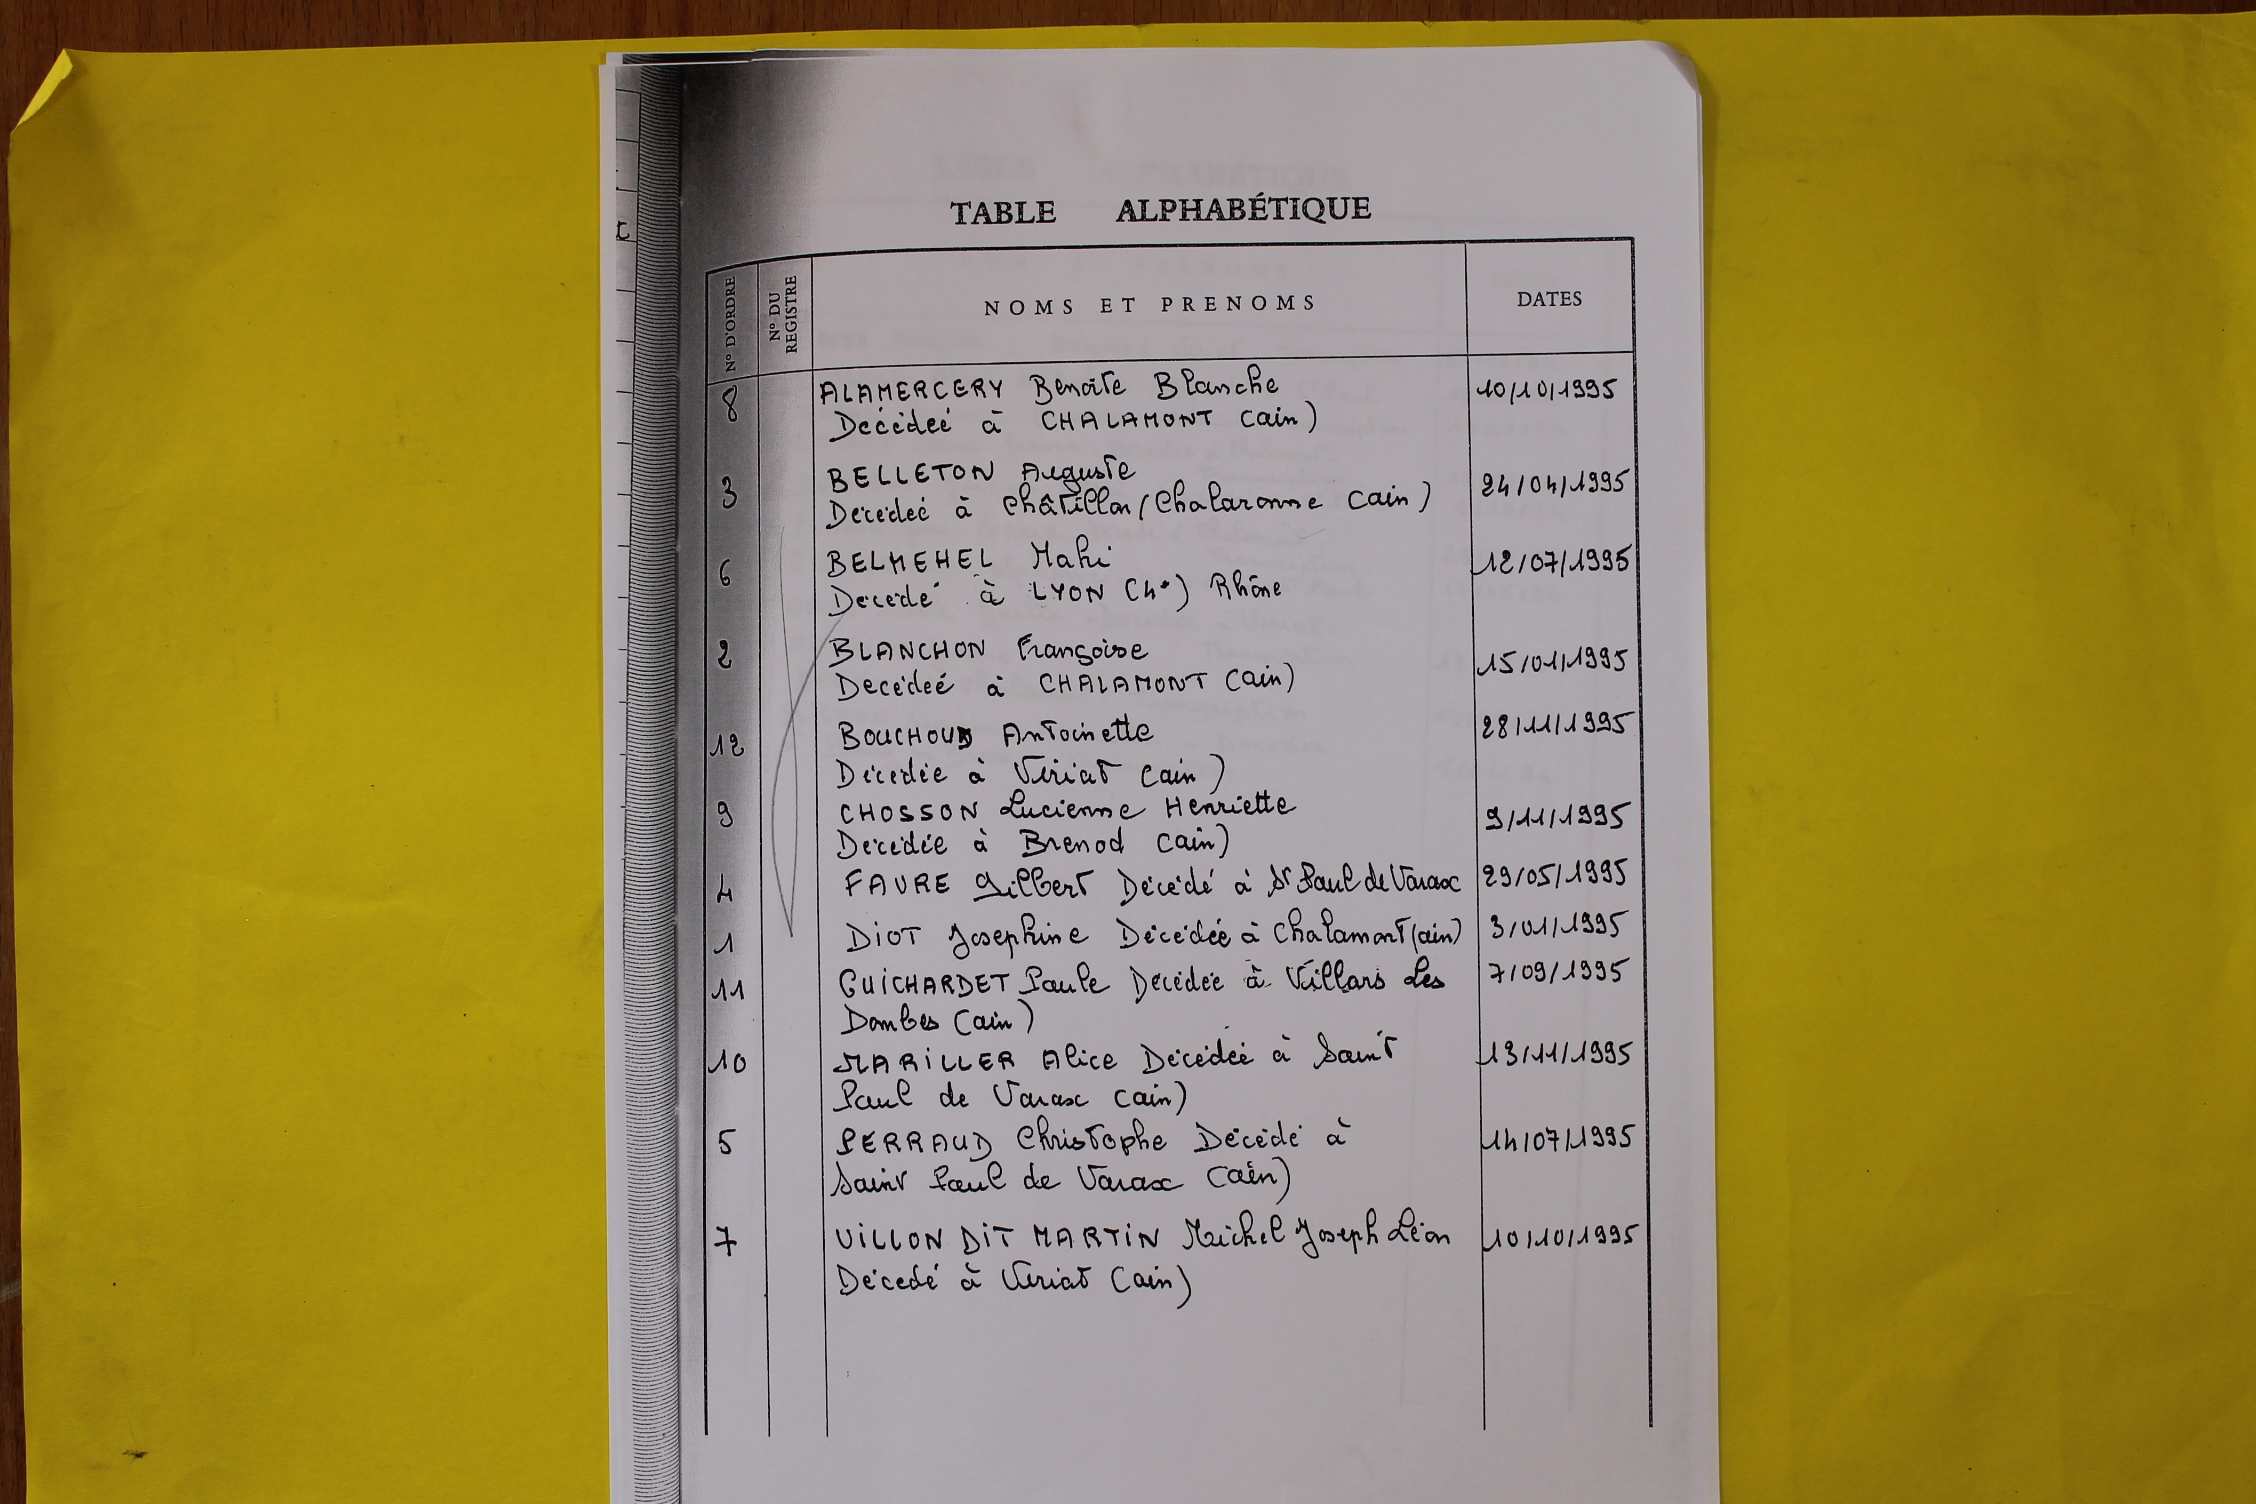 TABLE ALPHABÉTIQUE
N° D'ORDRE N° DU REGISTRE NOMS ET PRENOMS DATES
8 ALAMERCERY Benoite Blanche 10/10/1995
Décédeé à CHALAMONT (ain)
3 BELLETON Auguste 24/04/1995
Décédeé à Châtillon/Chalaronne (ain)
6 BELMEHEL Mahi 12/07/1995
Décédé à LYON (4e) Rhône
2 BLANCHON Françoise 15/01/1995
Decédeé à CHALAMONT (ain)
12 BOUCHOUD Antoinette 28/11/1995
Décedée à Viriat (ain)
9 CHOSSON Lucienne Henriette 9/11/1995
Décédée à Brenod (ain)
4 FAVRE Gilbert Décédé à St Paul de Varax 29/05/1995
1 DIOT Josephine Décédée à Chalamont (ain) 3/01/1995
11 GUICHARDET Paule Décédée à Villars Les 7/09/1995
Dombes (ain)
10 MARILLER Alice Décédeé à Saint 13/11/1995
Paul de Varax (ain)
5 PERRAUD Christophe Décédé à 14/07/1995
Saint Paul de Varax (ain)
7 VILLON DIT MARTIN Michel Joseph Léon 10/10/1995
Décedé à Viriat (ain)